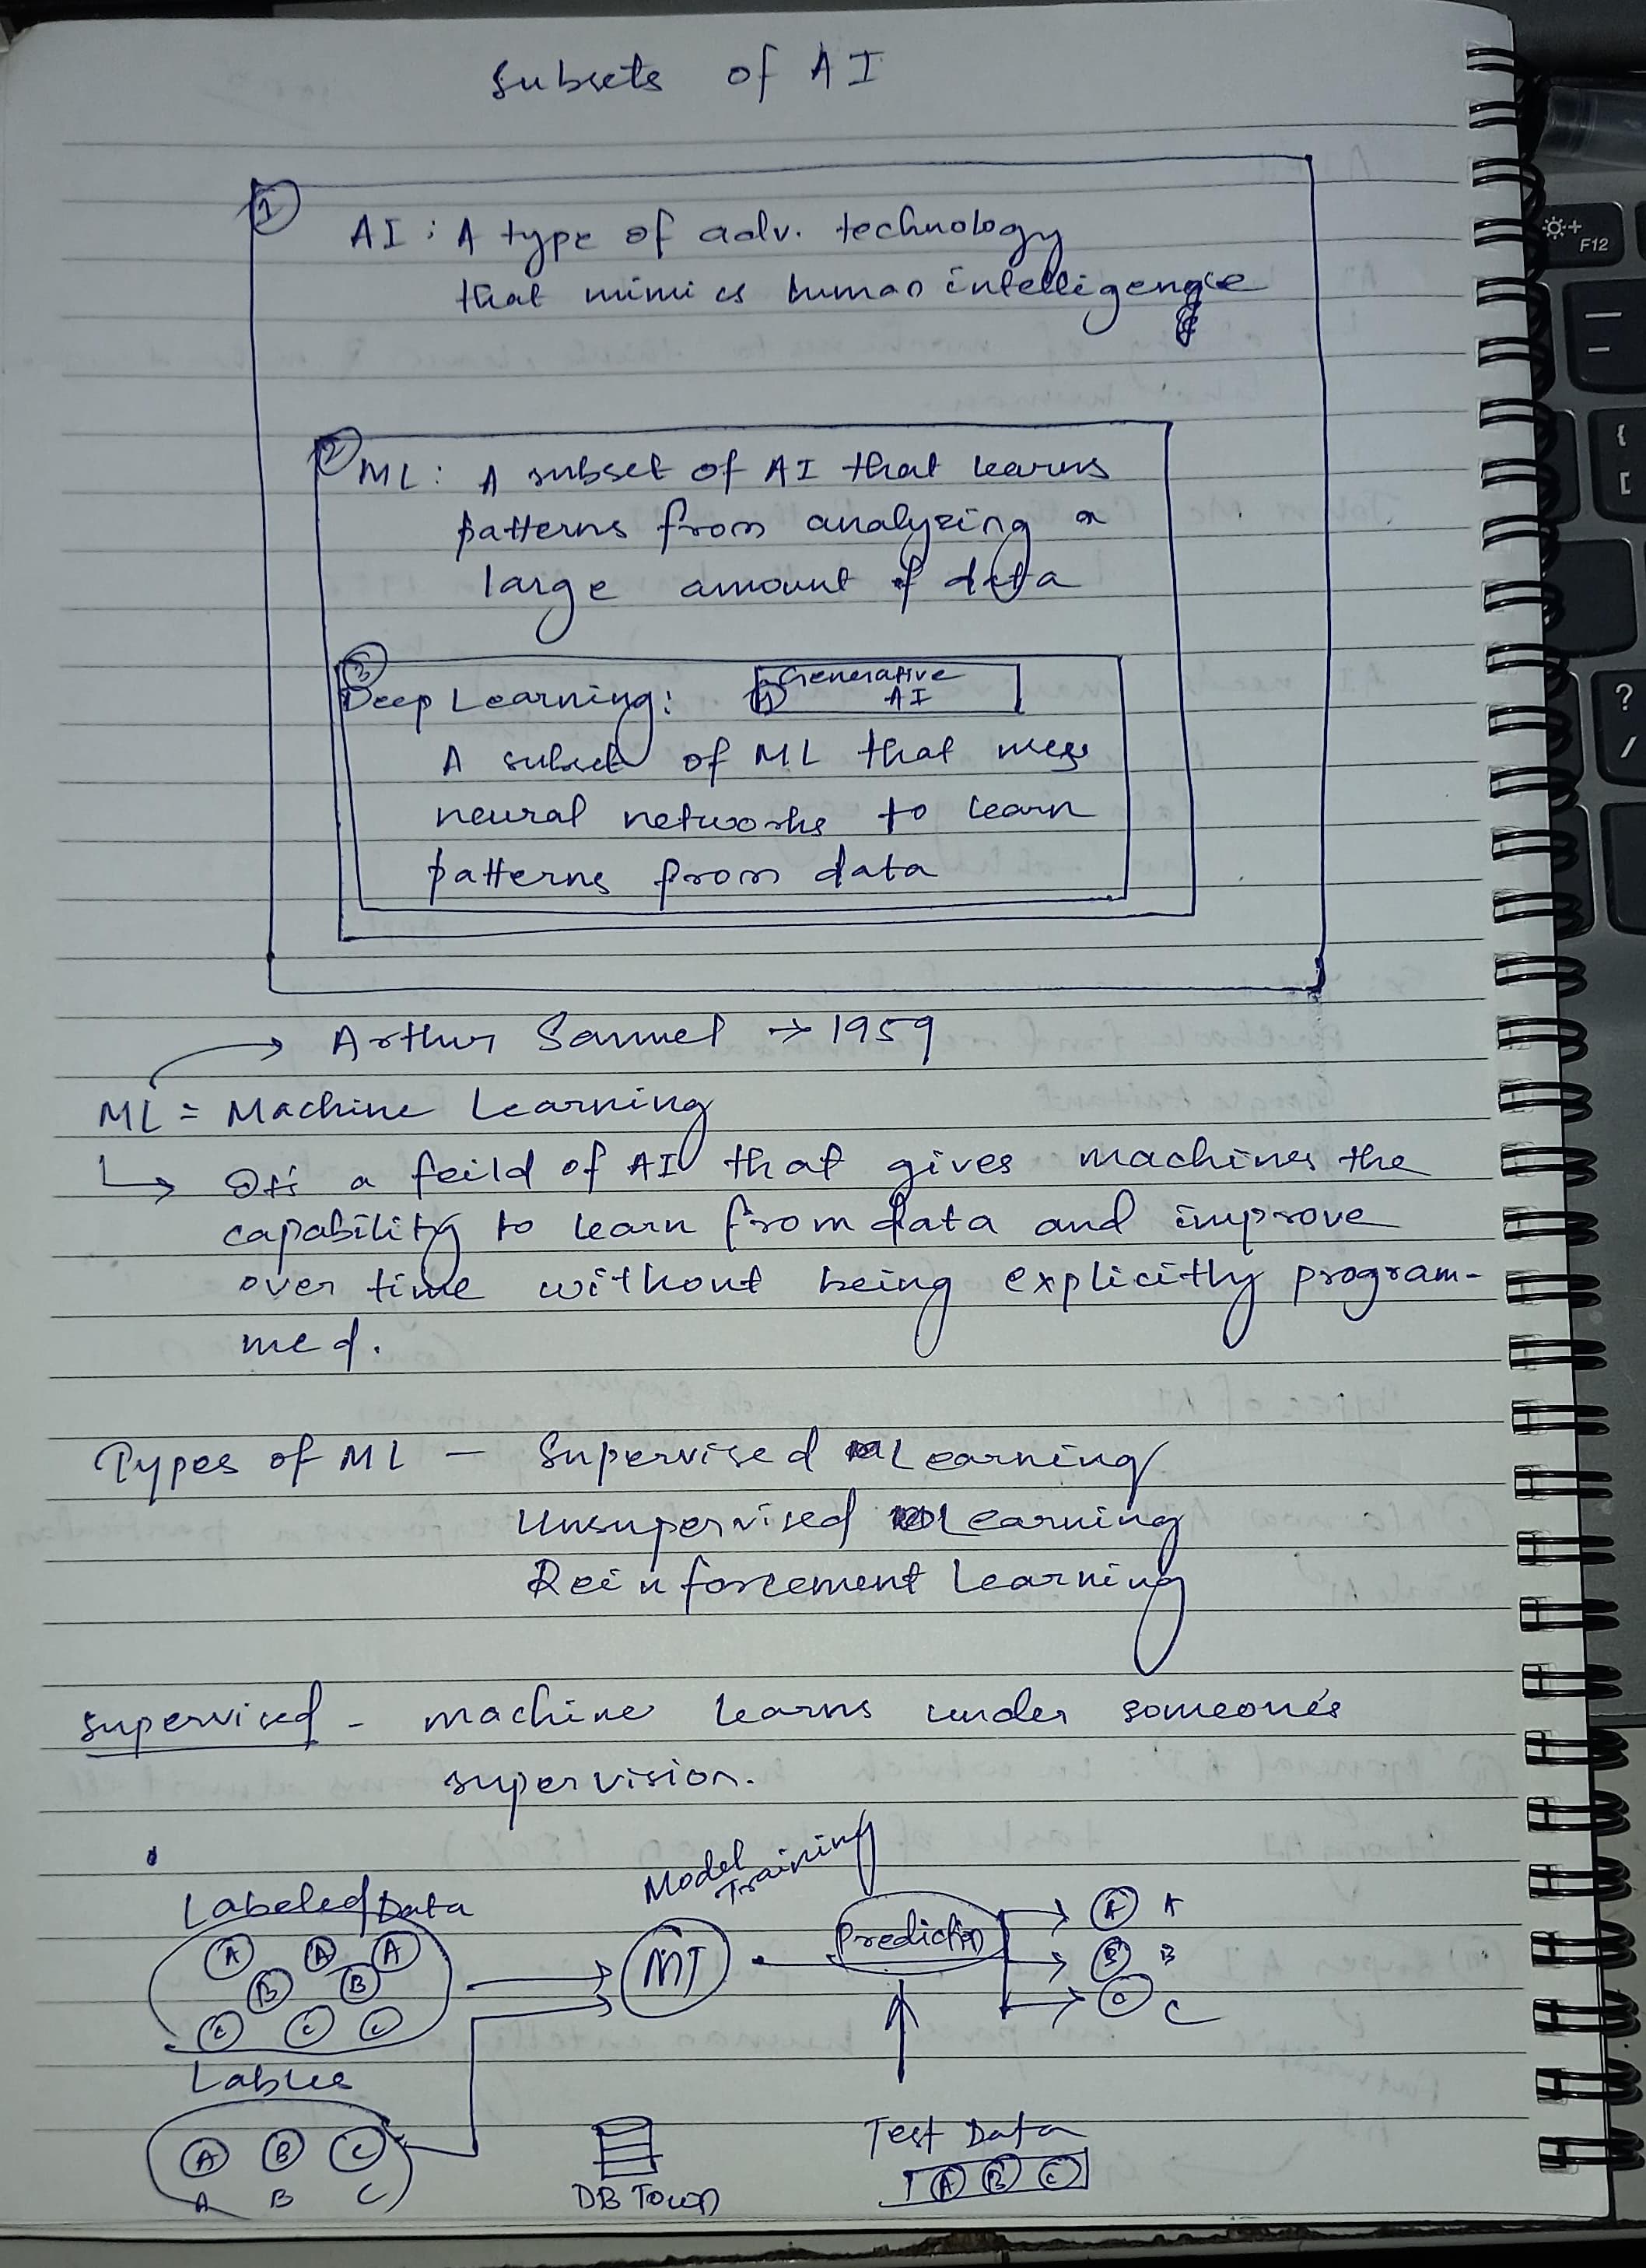 Subsets of AI
1
AI : A type of adv. technology
that mimics human intelligence
2 ML : A subset of AI that learns
patterns from analyzing a
large amount of data
3
Deep Learning :
Generative
AI
A subset of ML that uses
neural networks to learn
patterns from data
Arthur Samuel → 1959
ML = Machine Learning
↳ It's a feild of AI that gives machines the
capability to learn from data and improve
over time without being explicitly program-
med.
Types of ML — Supervised Learning
Unsupervised Learning
Reinforcement Learning
Supervised - machine learns under someone's
supervision.
Model
Training
Labeled Data
A A A
B B
C C C
MT
Prediction
A A
B B
C C
Lables
A B C
A B C
DB Town
Test Data
A B C
F12
{
[
?
/